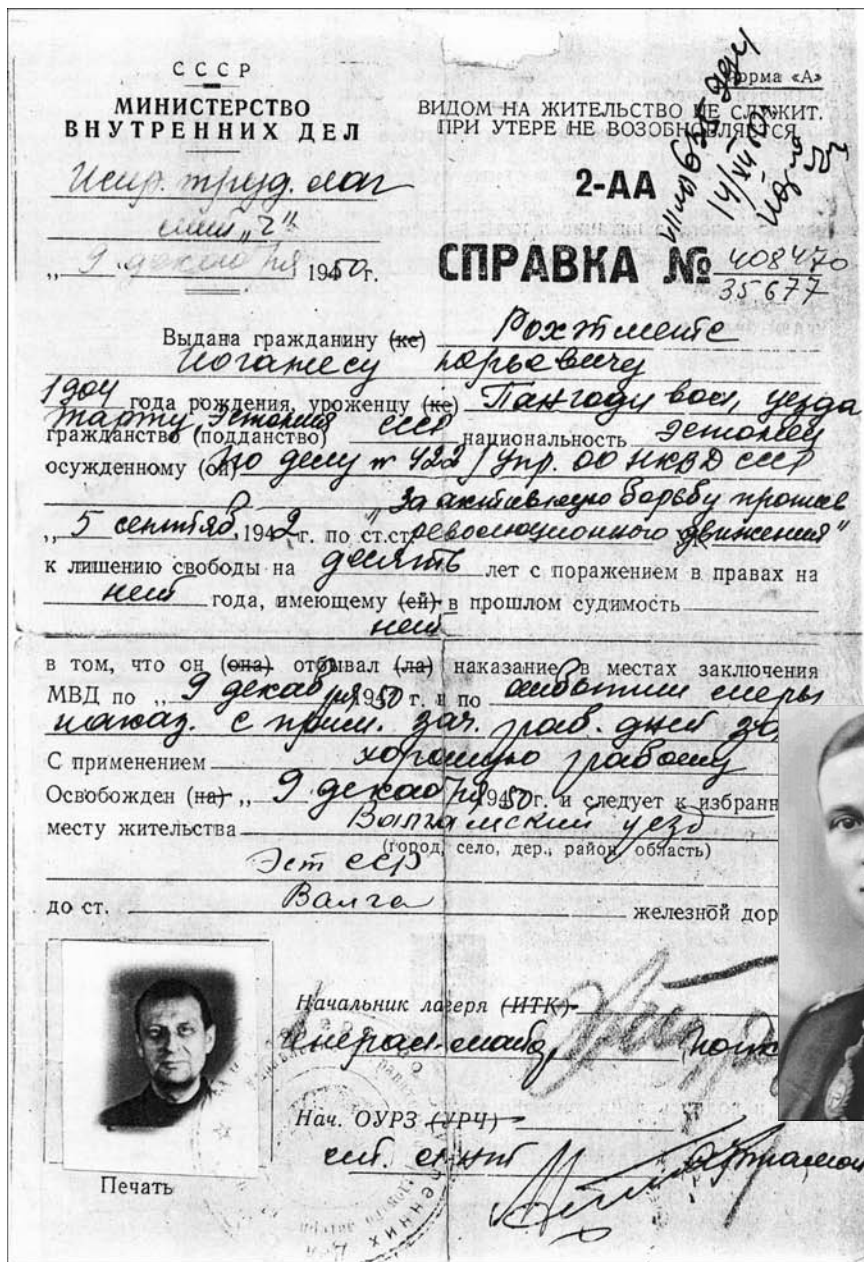 СССР
МИНИСТЕРСТВО
ВНУТРЕННИХ ДЕЛ
Испр. труд. лаг
„ 9 декабря 1950 г.
Форма «А»
ВИДОМ НА ЖИТЕЛЬСТВО НЕ СЛУЖИТ.
ПРИ УТЕРЕ НЕ ВОЗОБНОВЛЯЕТСЯ
2-АА
СПРАВКА № 408470
35677
Выдана гражданину (ке) Рохтменте
Иоганесу Юрьевичу
1904 года рождения, уроженцу (ке) Пангоди вол, уезда
Тарту, Эстония
гражданство (подданство) СССР национальность Эстонец
осужденному (ой) по делу № 422 / Упр. ОО НКВД СССР
"За активную борьбу против
„ 5 сентяб, 1942 г. по ст.ст. революционного движения"
к лишению свободы на десять лет с поражением в правах на
нет года, имеющему (ей) в прошлом судимость
нет
в том, что он (она) отбывал (ла) наказание в местах заключения
МВД по „ 9 декабря 1950 г. и по отбытии меры
наказ. с прим. зач. раб. дней за
С применением хорошую работу
Освобожден (на) „ 9 декабря 1950 г. и следует к избранн
месту жительства Валгамский уезд
(город, село, дер., район, область)
Эст ССР
до ст. Валга железной дор
Начальник лагеря (ИТК)
генерал-майор
Нач. ОУРЗ (УРЧ)
Печать